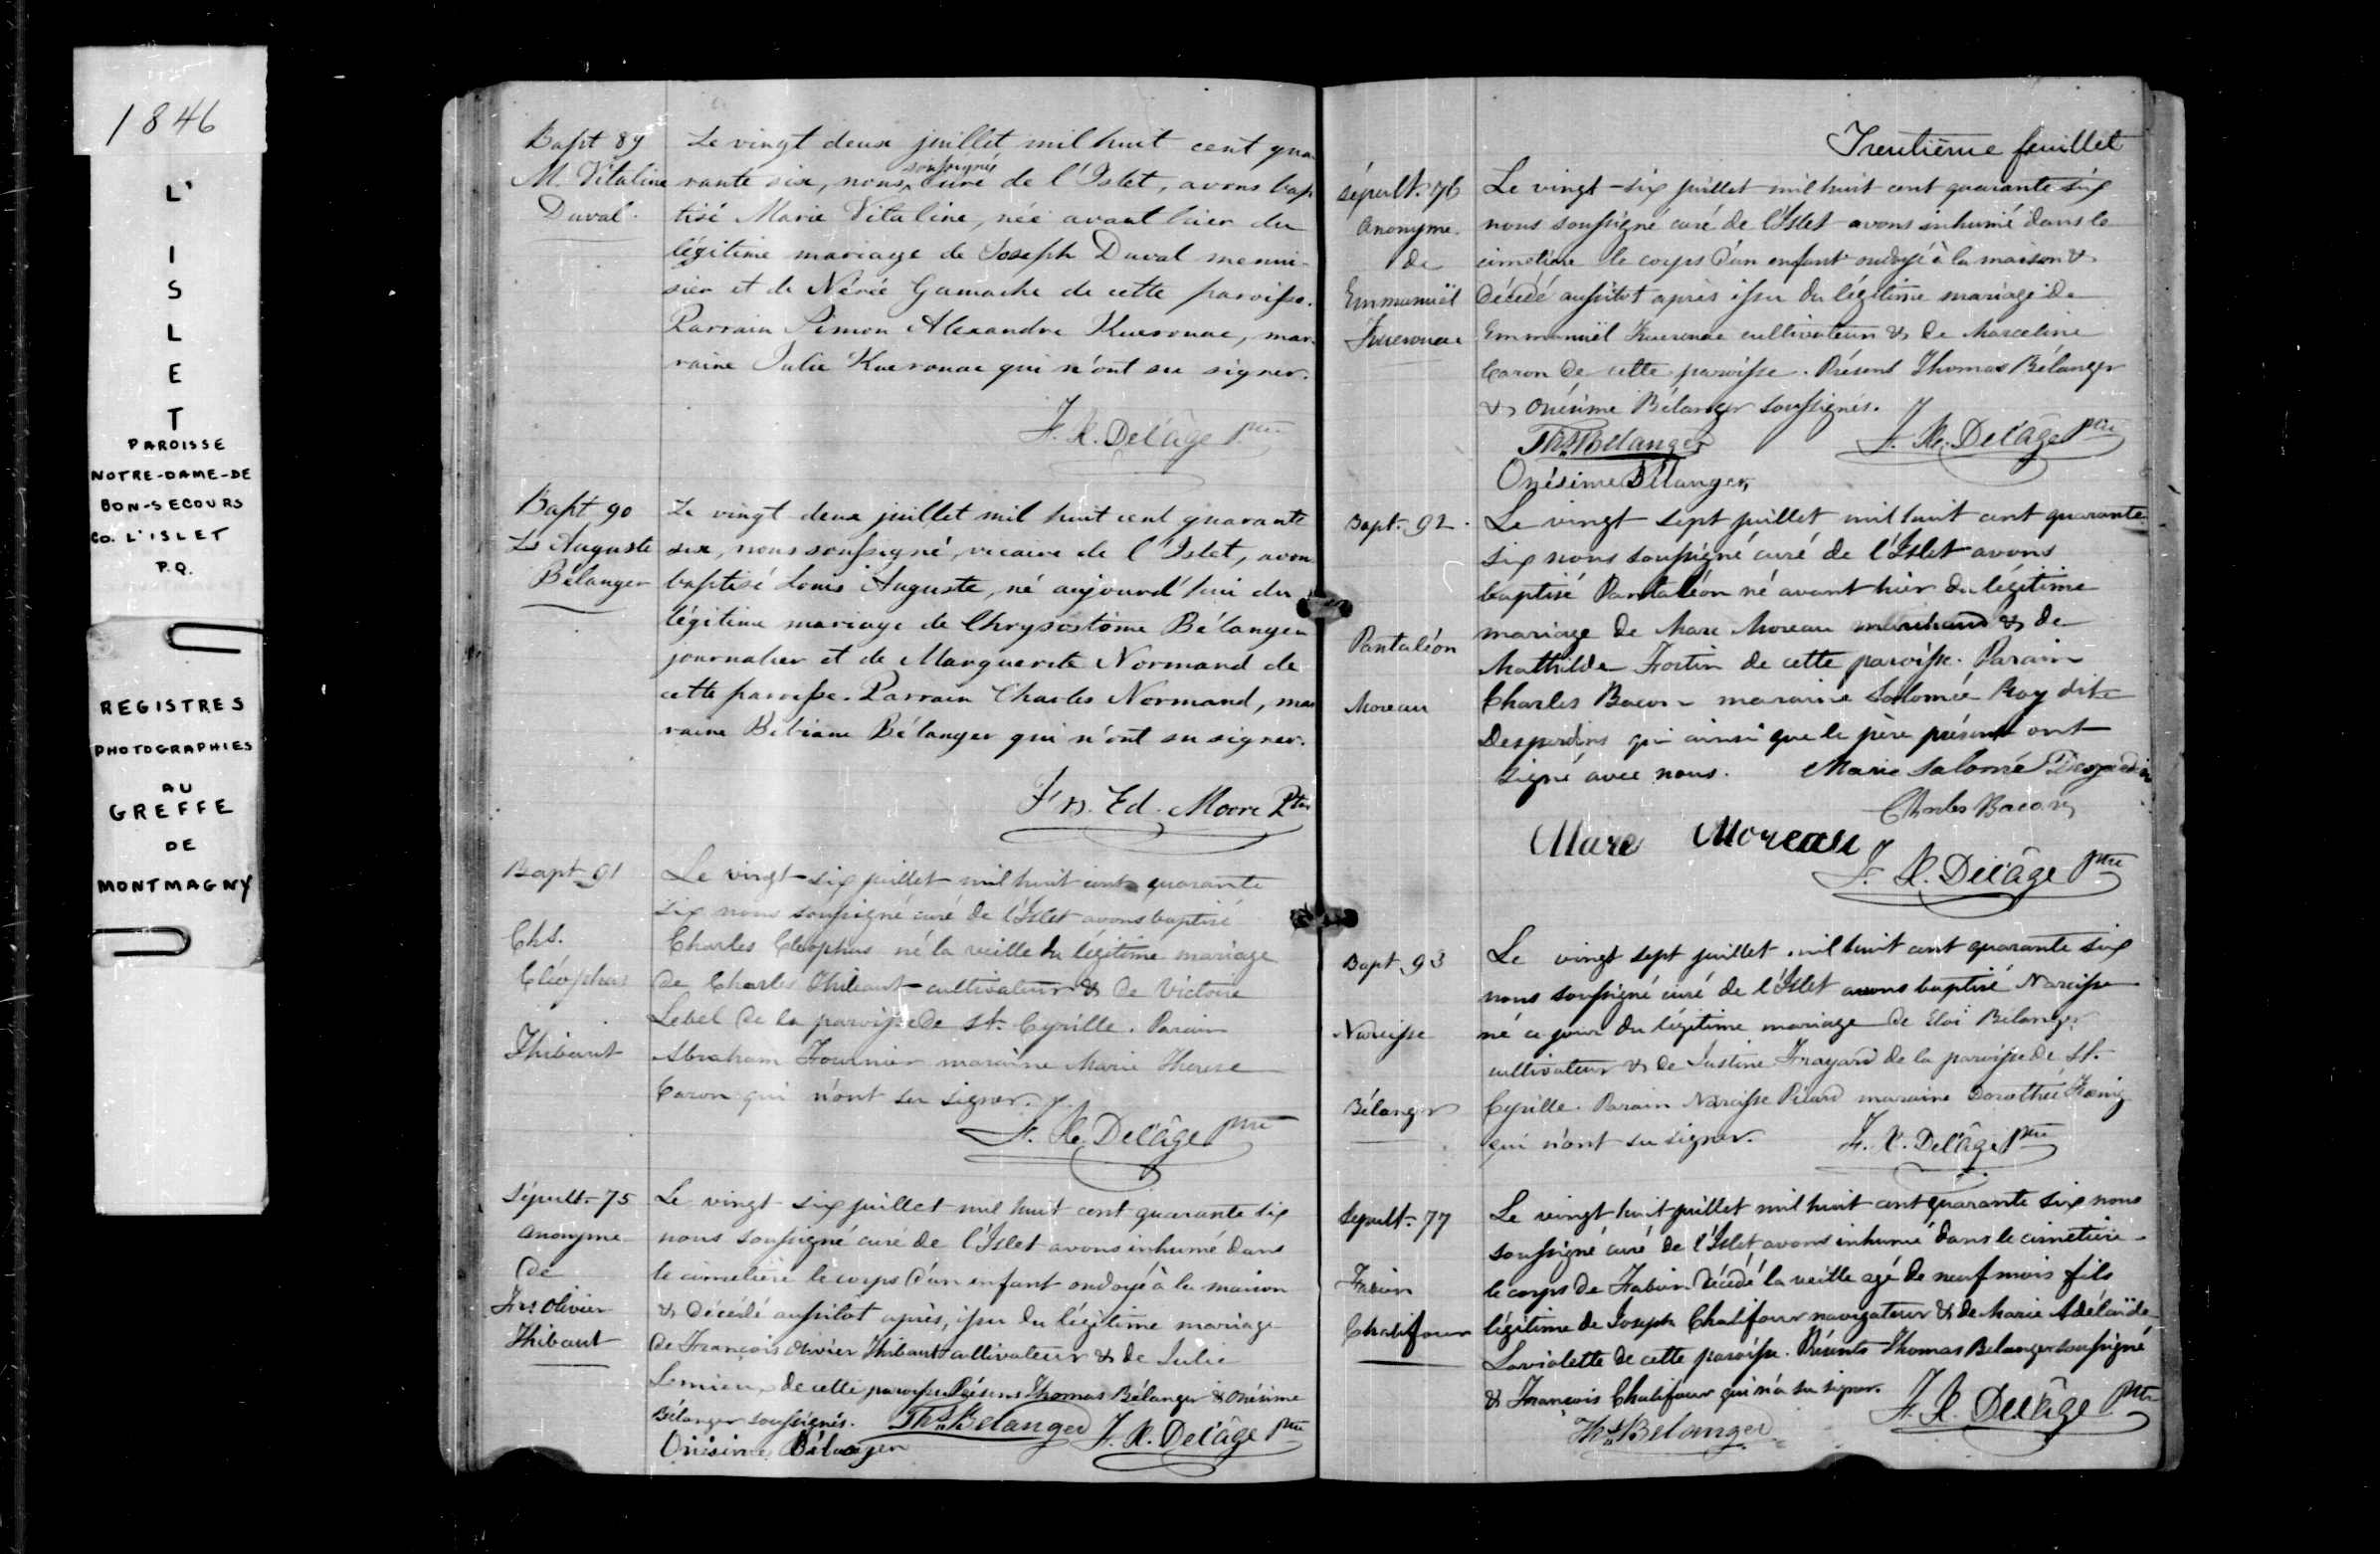 1846
L'
I
S
L
E
T
PAROISSE
NOTRE-DAME-DE
BON-SECOURS
CO. L'ISLET
P.Q.
REGISTRES
PHOTOGRAPHIES
AU
GREFFE
DE
MONTMAGNY
Bapt 89
M. Vitaline
Duval.
Le vingt deux juillet mil huit cent qua
rante six, nous soussigné curé de l'Islet, avons bap
tisé Marie Vitaline, née avant hier du
légitime mariage de Joseph Duval menui-
sier et de Nérée Gamache de cette paroisse.
Parrain Simon Alexandre Kuerouac, mar
raine Julie Kuerouac qui n'ont su signer.
F. X. Delâge Ptre
Bapt 90
Ls Auguste
Bélanger
Le vingt deux juillet mil huit cent quarante
six, nous soussigné, vicaire de l'Islet, avons
baptisé Louis Auguste, né aujourd'hui du
légitime mariage de Chrysostôme Bélanger
journalier et de Marguerite Normand de
cette paroisse. Parrain Charles Normand, mar
raine Bibiane Bélanger qui n'ont su signer.
Frs. Ed. Moore Ptre
Bapt 91
Chs.
Cléophas
Thibaut
Le vingt-six juillet mil huit cent quarante
six nous soussigné curé de l'Islet avons baptisé
Charles Cléophas né la veille du légitime mariage
de Charles Thibaut cultivateur & de Victoire
Lebel de la paroisse de St. Cyrille. Parain
Abraham Fournier maraine Marie Therese
Caron qui n'ont su signer.
F. X. Delâge Ptre
Sépult. 75
Anonyme
de
Frs Olivier
Thibaut
Le vingt-six juillet mil huit cent quarante six
nous soussigné curé de l'Islet avons inhumé dans
le cimetière le corps d'un enfant ondoyé à la maison
& décédé aussitôt après, issu du légitime mariage
de François Olivier Thibaut cultivateur & de Julie
Lemieux de cette paroisse. Présens Thomas Bélanger & Onésime
Bélanger soussignés. Ths Bélanger F. X. Delâge Ptre
Onésime Bélanger
Trentième feuillet
Sépult. 76
Anonyme
de
Emmanuël
Kuerouac
Le vingt-six juillet mil huit cent quarante six
nous soussigné curé de l'Islet avons inhumé dans le
cimetière le corps d'un enfant ondoyé à la maison &
décédé aussitôt après issu du légitime mariage de
Emmanuël Kuerouac cultivateur & de Marceline
Caron de cette paroisse. Présens Thomas Bélanger
& Onésime Bélanger soussignés.
Ths Bélanger F. X. Delâge Ptre
Onésime Bélanger
Bapt. 92
Pantaléon
Moreau
Le vingt sept juillet mil huit cent quarante
six nous soussigné curé de l'Islet avons
baptisé Pantaléon né avant hier du légitime
mariage de Marc Moreau marchand & de
Mathilde Fortin de cette paroisse. Parain
Charles Bacon maraine Salomée Roy dite
Desjardins qui ainsi que le père présent ont
signé avec nous. Marie Salomé Desjardin
Charles Bacon
Marc Moreau
F. X. Delâge Ptre
Bapt. 93
Narcisse
Bélanger
Le vingt sept juillet mil huit cent quarante six
nous soussigné curé de l'Islet avons baptisé Narcisse
né ce jour du légitime mariage de Eloi Bélanger
cultivateur & de Justine Frayard de la paroisse de St.
Cyrille. Parain Narcisse Picard maraine Dorothée Kœnig
qui n'ont su signer. F. X. Delâge Ptre
Sepult. 77
Fabien
Chalifour
Le vingt huit juillet mil huit cent quarante six nous
soussigné curé de l'Islet avons inhumé dans le cimetière
le corps de Fabien décédé la veille agé de neuf mois fils
légitime de Joseph Chalifour navigateur & de Marie Adélaïde
Laviolette de cette paroisse. Présents Thomas Bélanger soussigné
& François Chalifour qui n'a su signer. F. X. Delâge Ptre
Ths Bélanger